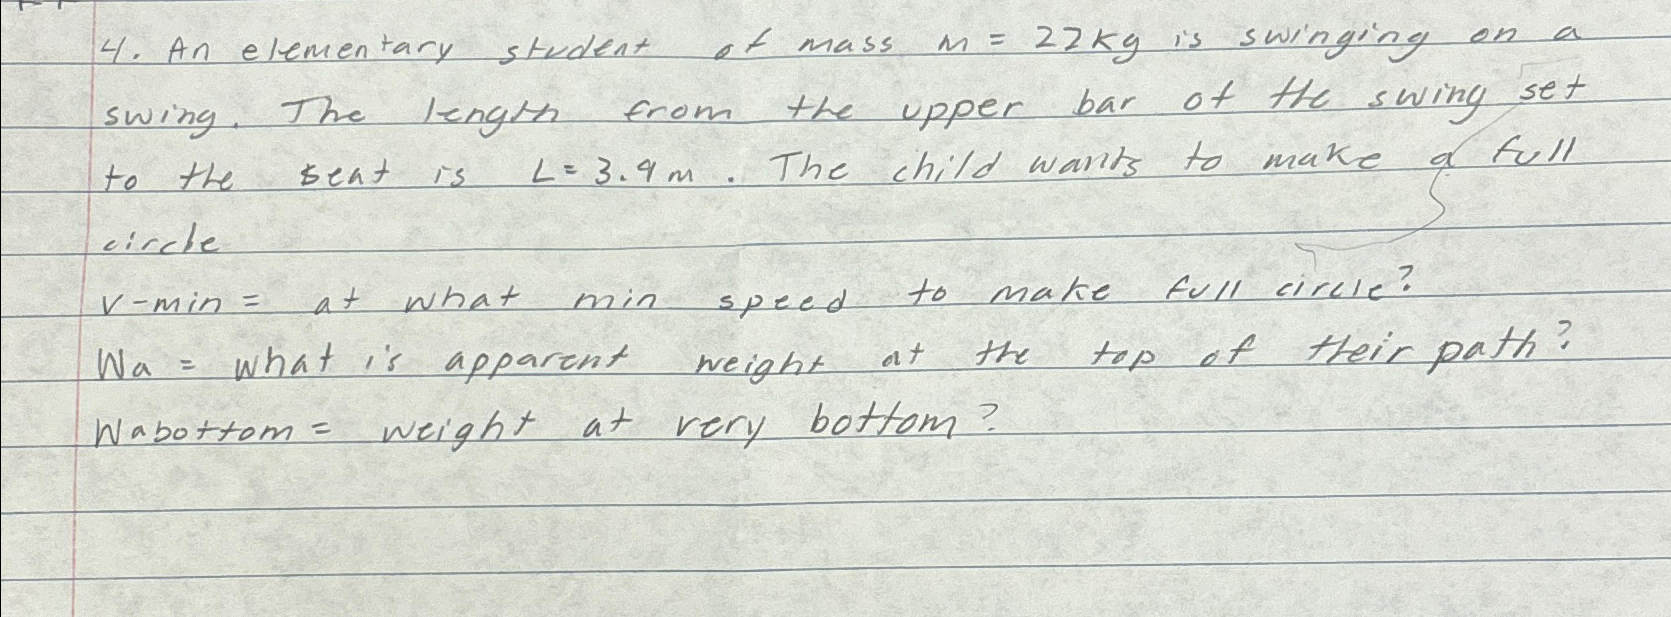 4. An elementary student of mass m = 22kg is swinging on a
swing. The length from the upper bar of the swing set
to the seat is L= 3.9m. The child wants to make a full
circle
v-min = at what min speed to make full circle?
Wa = what is apparent weight at the top of their path?
Wabottom = weight at very bottom?